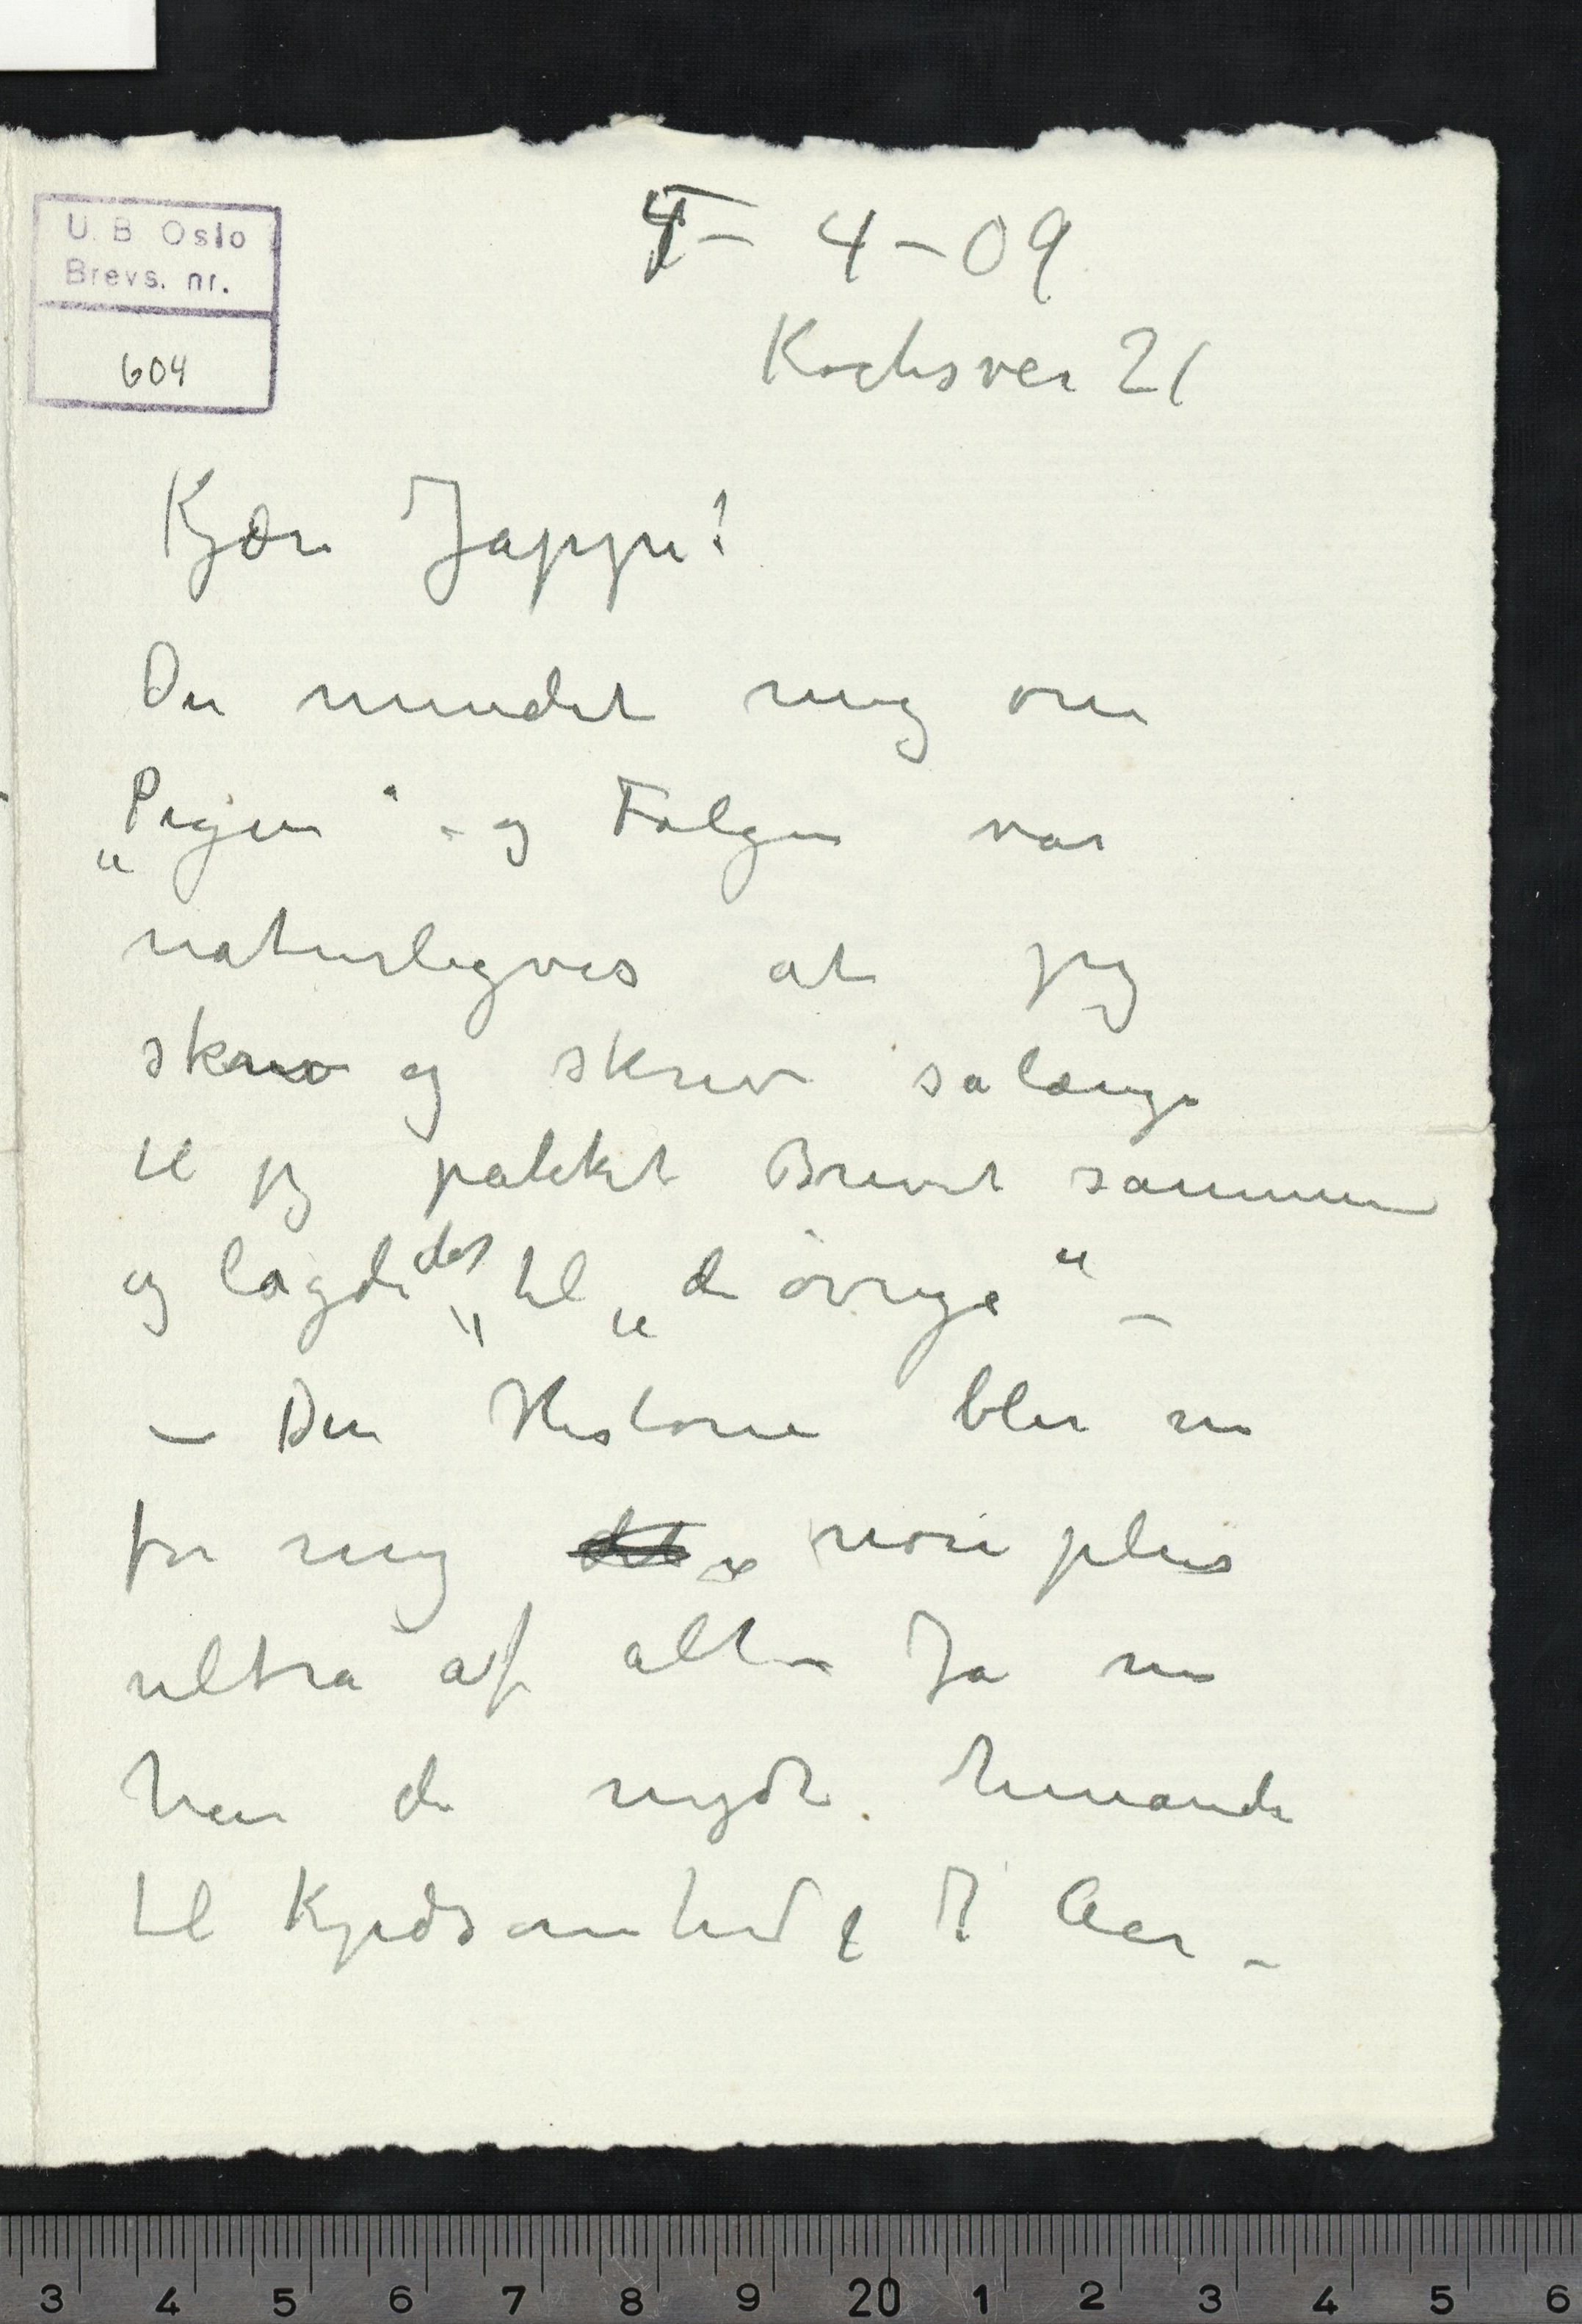 U. B. Oslo
Brevs. nr.
604
4 – 4 – 09
Kochsvei 21
Kjære Jappe!
Du mindet mig om
„Pigen“ – og Følgen var
naturligvis at jeg
skrev og skrev salænge
til jeg pakket Brevet sammen
og lagde det til „de øvrige“ –
– Den Historie blir nu
for mig det non plus
ultra af alt – Ja nu
har de nydt hinanden
til Kjedsomhed i 7 Aar –
3 4 5 6 7 8 9 20 1 2 3 4 5 6